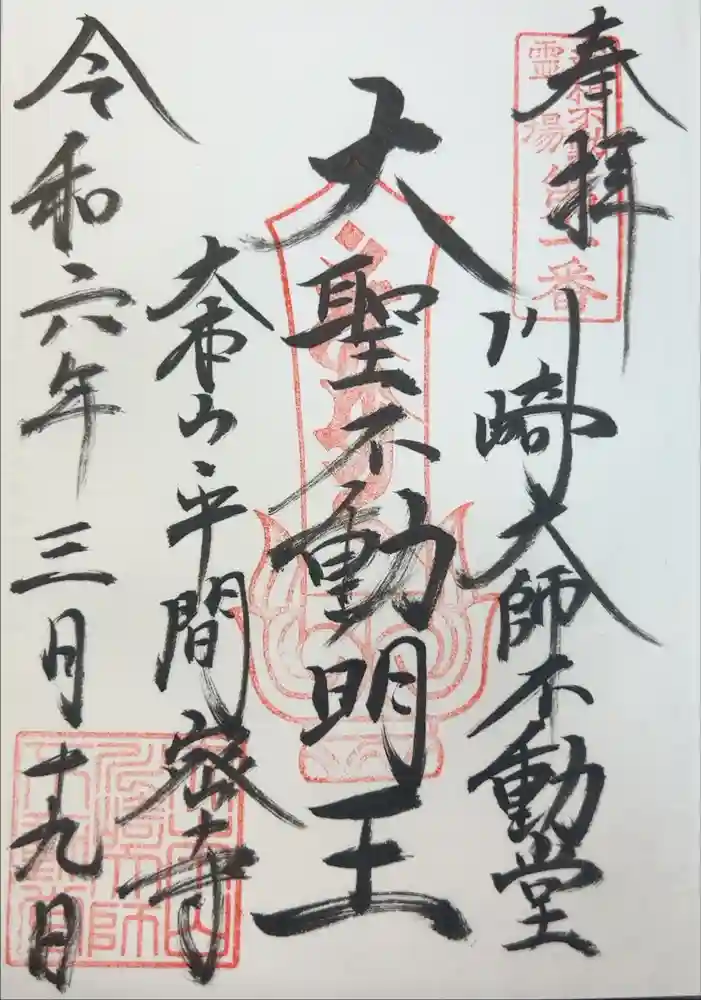 奉拝
川崎大師不動堂
大聖不動明王
大本山平間寺
令和六年三月十九日
霊場第一番